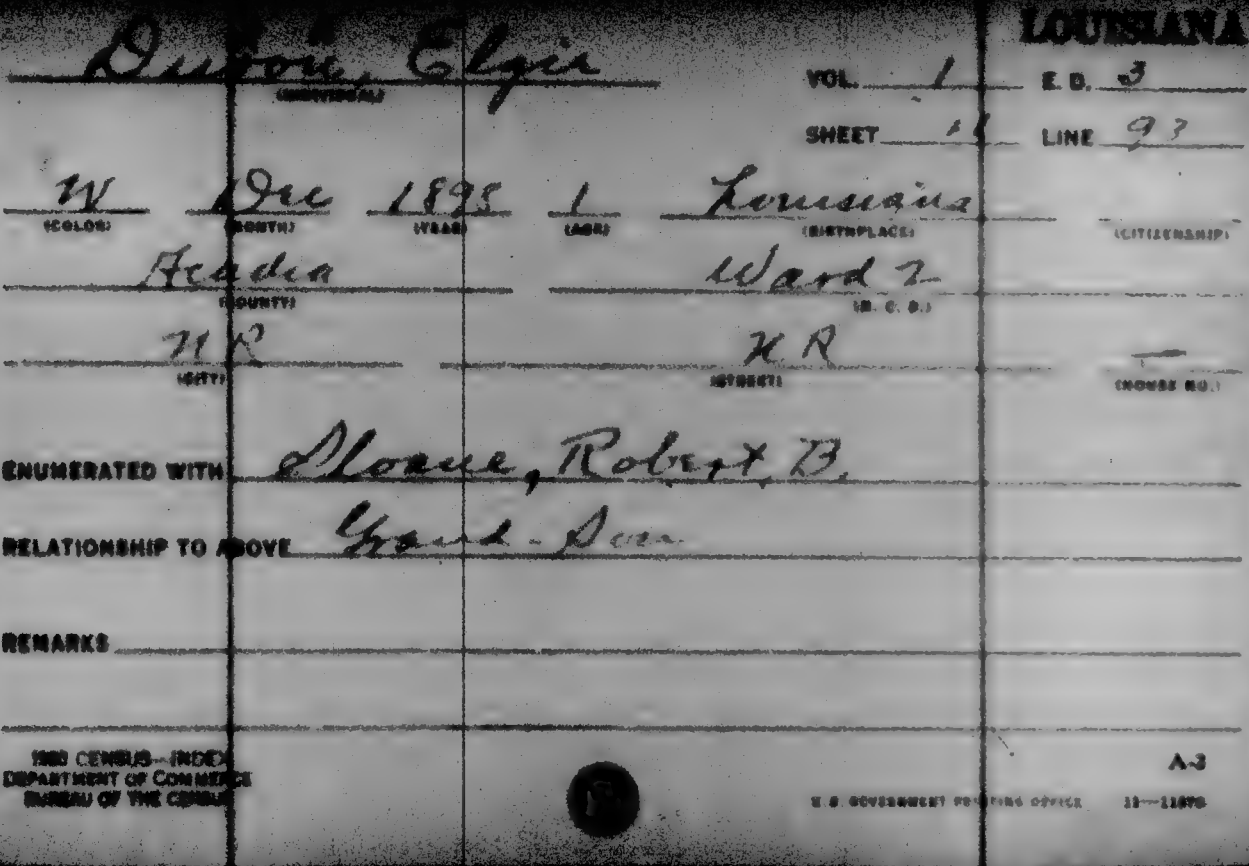 LOUISIANA
Elgir
VOL. 1 E. D. 3
(INDIVIDUAL)
SHEET LINE 93
W Dec 1898 1 Louisiana
(COLOR) (MONTH) (YEAR) (AGE) (BIRTHPLACE) (CITIZENSHIP)
Acadia Ward 2
(COUNTY) (M. C. D.)
N R N R —
(CITY) (STREET) (HOUSE NO.)
ENUMERATED WITH Sloane, Robert B.
RELATIONSHIP TO ABOVE Grand-Son
REMARKS
1900 CENSUS—INDEX
DEPARTMENT OF COMMERCE
BUREAU OF THE CENSUS
A-3
U.S. GOVERNMENT PRINTING OFFICE 11—11870